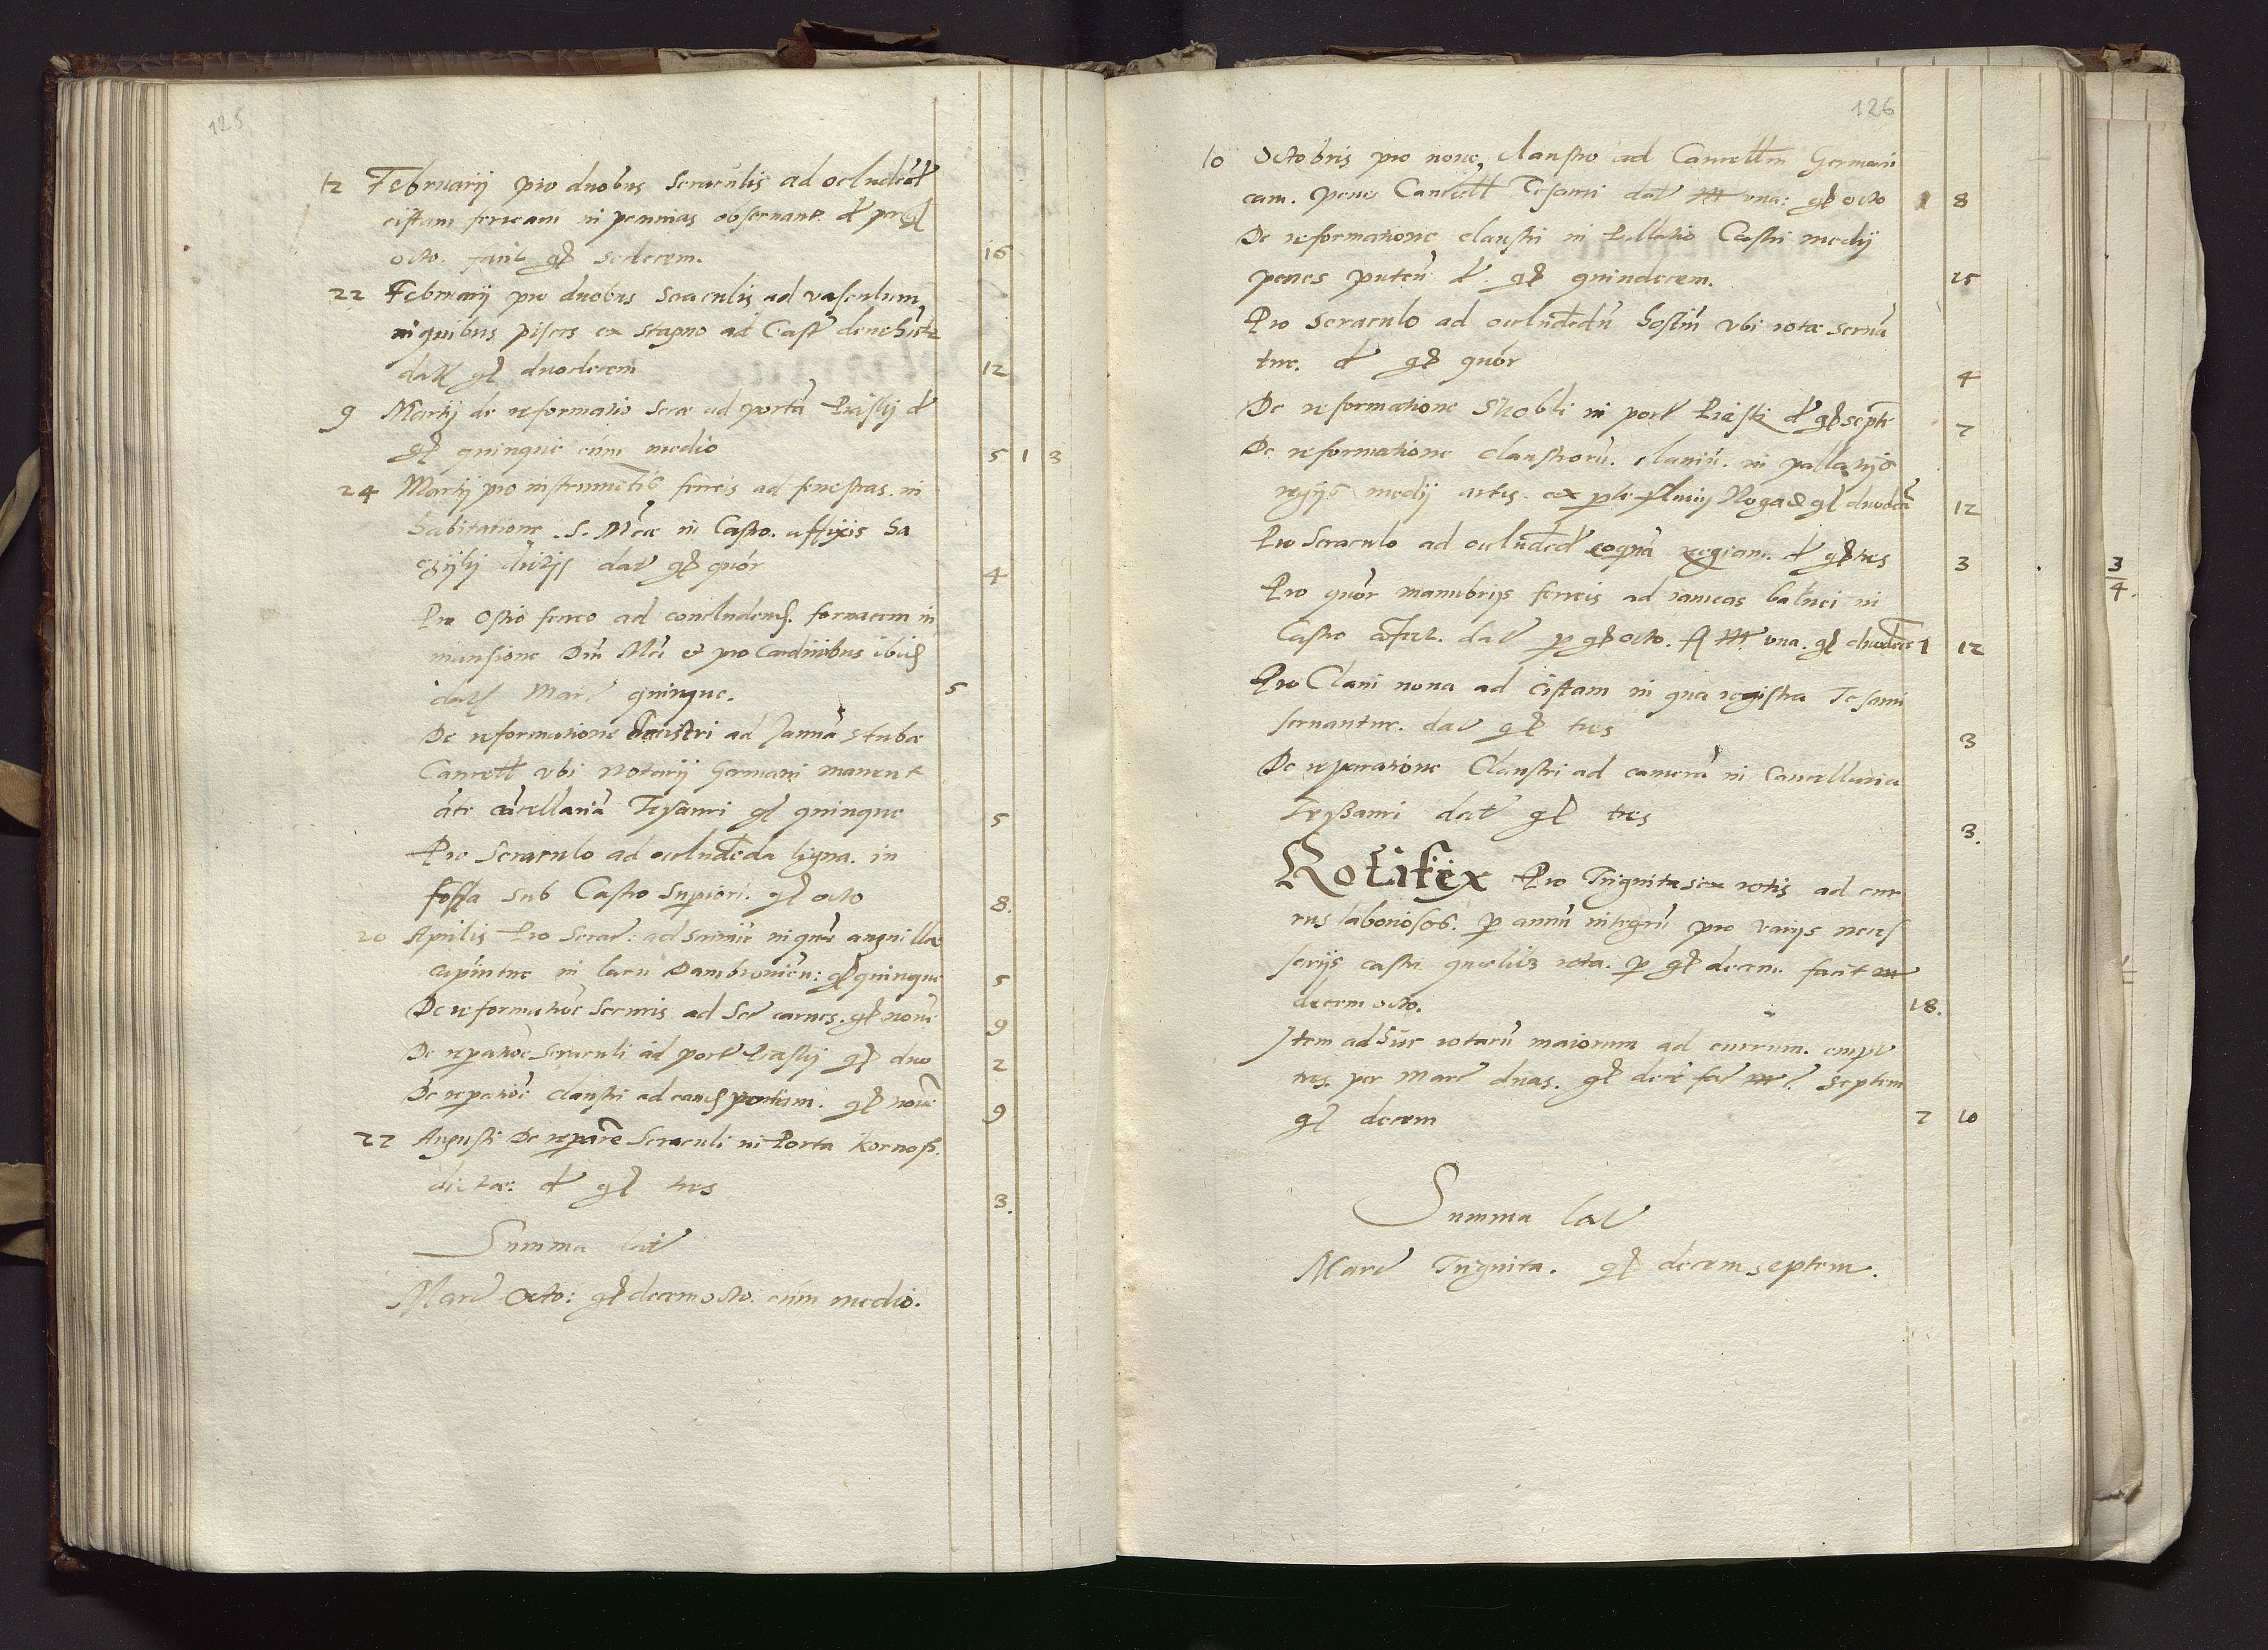 125
12 Februarij pro duobus Seraculis ad occludēd
cistam ferream in pecunias obseruant. d per gł
octo. facit gł sedecem. 16
22 Februarij pro duobus Seraculis ad vasculum,
in quibus pisces ex stagno ad Castr
datt gł duodecem 12
9 Martij de reformatio Serae ad portā Piaskij d
gł quinque cum medio 5 1 3
24 Martij pro instrumētis ferreis ad fenestras in
habitatione S. Mtae in Castro. affixis
dat gł quōr 4
Pro Ostio ferreo ad concludend. fornacem in
mansione Dni Mci et pro Cardinibus ibid
datt Marc quinque. 5
De reformatione Claustri ad Januā stubae
Cancell vbi Notarij Germani manent
āte cācellariā Tesauri gł quinque 5
Pro Seraculo ad occludēda ligna. in
fossa sub Castro Superiori. gł octo 8.
20 Aprilis Pro Serac: ad in quā anguillae
capiūtur in lacu Dambrouien: gł quinque 5
De reformatiōe Securis ad Sec carnes. gł nouē 9
De reparatiōe Seraculi ad port Piaskij gł duo 2
De reparatiōe claustri ad eand portam. gł nouē 9
22 Augusti De reparatiōe Seraculi in Porta Kornoß.
dictae: d gł tres 3.
Summa lat
Marc Octo: gł decem octo. cum medio.
126
10 Octobris pro nouo, claustro ad Cancellm Germani
cam. penes Cancell Tesauri dat m una: gł octo 1 8
De reformatione claustri in Pallatio Castri medij
penes puteū d. gł quindecem. 15
Pro Seraculo ad occludēdū hostiū vbi rotae seruā
tur. d gł quōr 4
De reformatione Skobli in port Piaski d gł septē 7
De reformatione claustrorū. clauiū. in pallatijs
regijs medij artis. ex pte fluuij Nogad gł duodecē 12
Pro Seraculo ad occludēd coqnā regiam. d gł tres 3
Pro quōr manubrijs ferreis ad ianuas balnei in
Castro dat p gł octo. m una. gł duodecē 1 12
Pro Claui noua ad Cistam in qua registra Tesauri
seruantur. dat gł tres 3
De reparatione Claustri ad camerā in Cancellaria
Treßauri dat gł tres 3.
Rotifex Pro Triginta sex rotis ad cur
rus laboriosos. p annū integrū pro varijs neces
sarijs castri quaelibet rota. p gł decem. facit m
decem octo. 18.
Item adhuc rotarū maiorum ad currum. empt
tres. per marc duas. gł decē fac m. septem
gł decem 7 10
Summa lat
Marc Triginta. gł decem septem.
3
4.